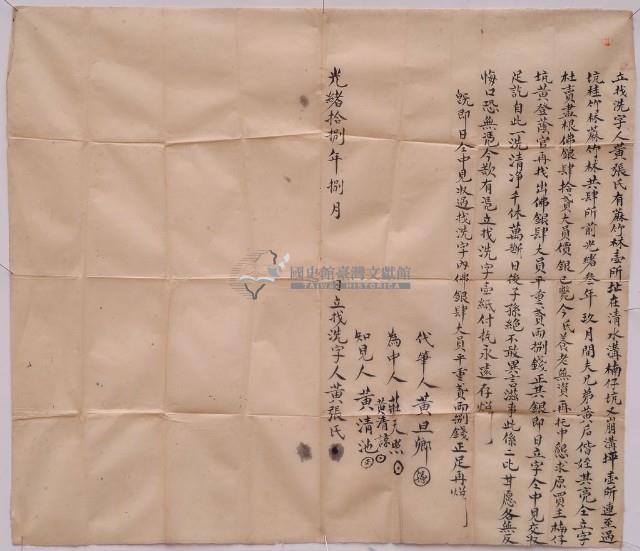 立找洗字人黃張氏有蔴竹林壹所址在清水溝楠仔坑又崩溝坪壹所連至過
坑桂竹林蔴竹林共肆所前光緒叁年玖月間夫兄弟黃八后偕姪其亮仝立字
杜賣盡根佛銀肆拾貳大員價銀已甃今氏養老無資再托中懇求原買主楠仔
坑黃登蔭官再找出佛銀肆大員平重弍両捌錢正其銀即日立字仝中見交收
足訖自此一洗清净千休萬斷日後子孫絕不敢異言滋事此係二比甘愿各無反
悔口恐無憑今欲有憑立找洗字壹紙付执永遠存炤
既即日仝中見收過找洗字內佛銀肆大員平重弍両捌錢正足再炤
代筆人黃旦卿
為中人莊天與
黃清諒
知見人黃清池
光緒拾捌年捌月 日立找洗字人黃張氏
國史館臺灣文獻館
TAIWAN HISTORICA